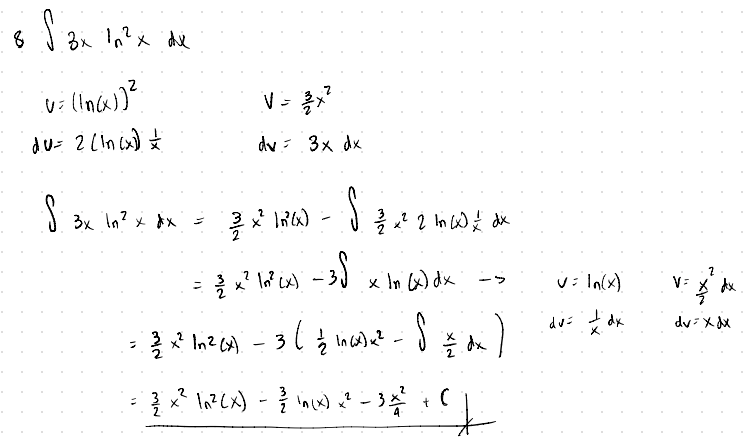 8 ∫ 3x ln²x dx
u = (ln(x))² v = 3/2 x²
du = 2(ln(x)) 1/x dv = 3x dx
∫ 3x ln²x dx = 3/2 x² ln²(x) - ∫ 3/2 x² 2 ln(x) 1/x dx
= 3/2 x² ln²(x) - 3∫ x ln(x) dx -> u = ln(x) v = x²/2 dx
du = 1/x dx dv = x dx
= 3/2 x² ln²(x) - 3( 1/2 ln(x) x² - ∫ x/2 dx )
= 3/2 x² ln²(x) - 3/2 ln(x) x² - 3 x²/4 + C